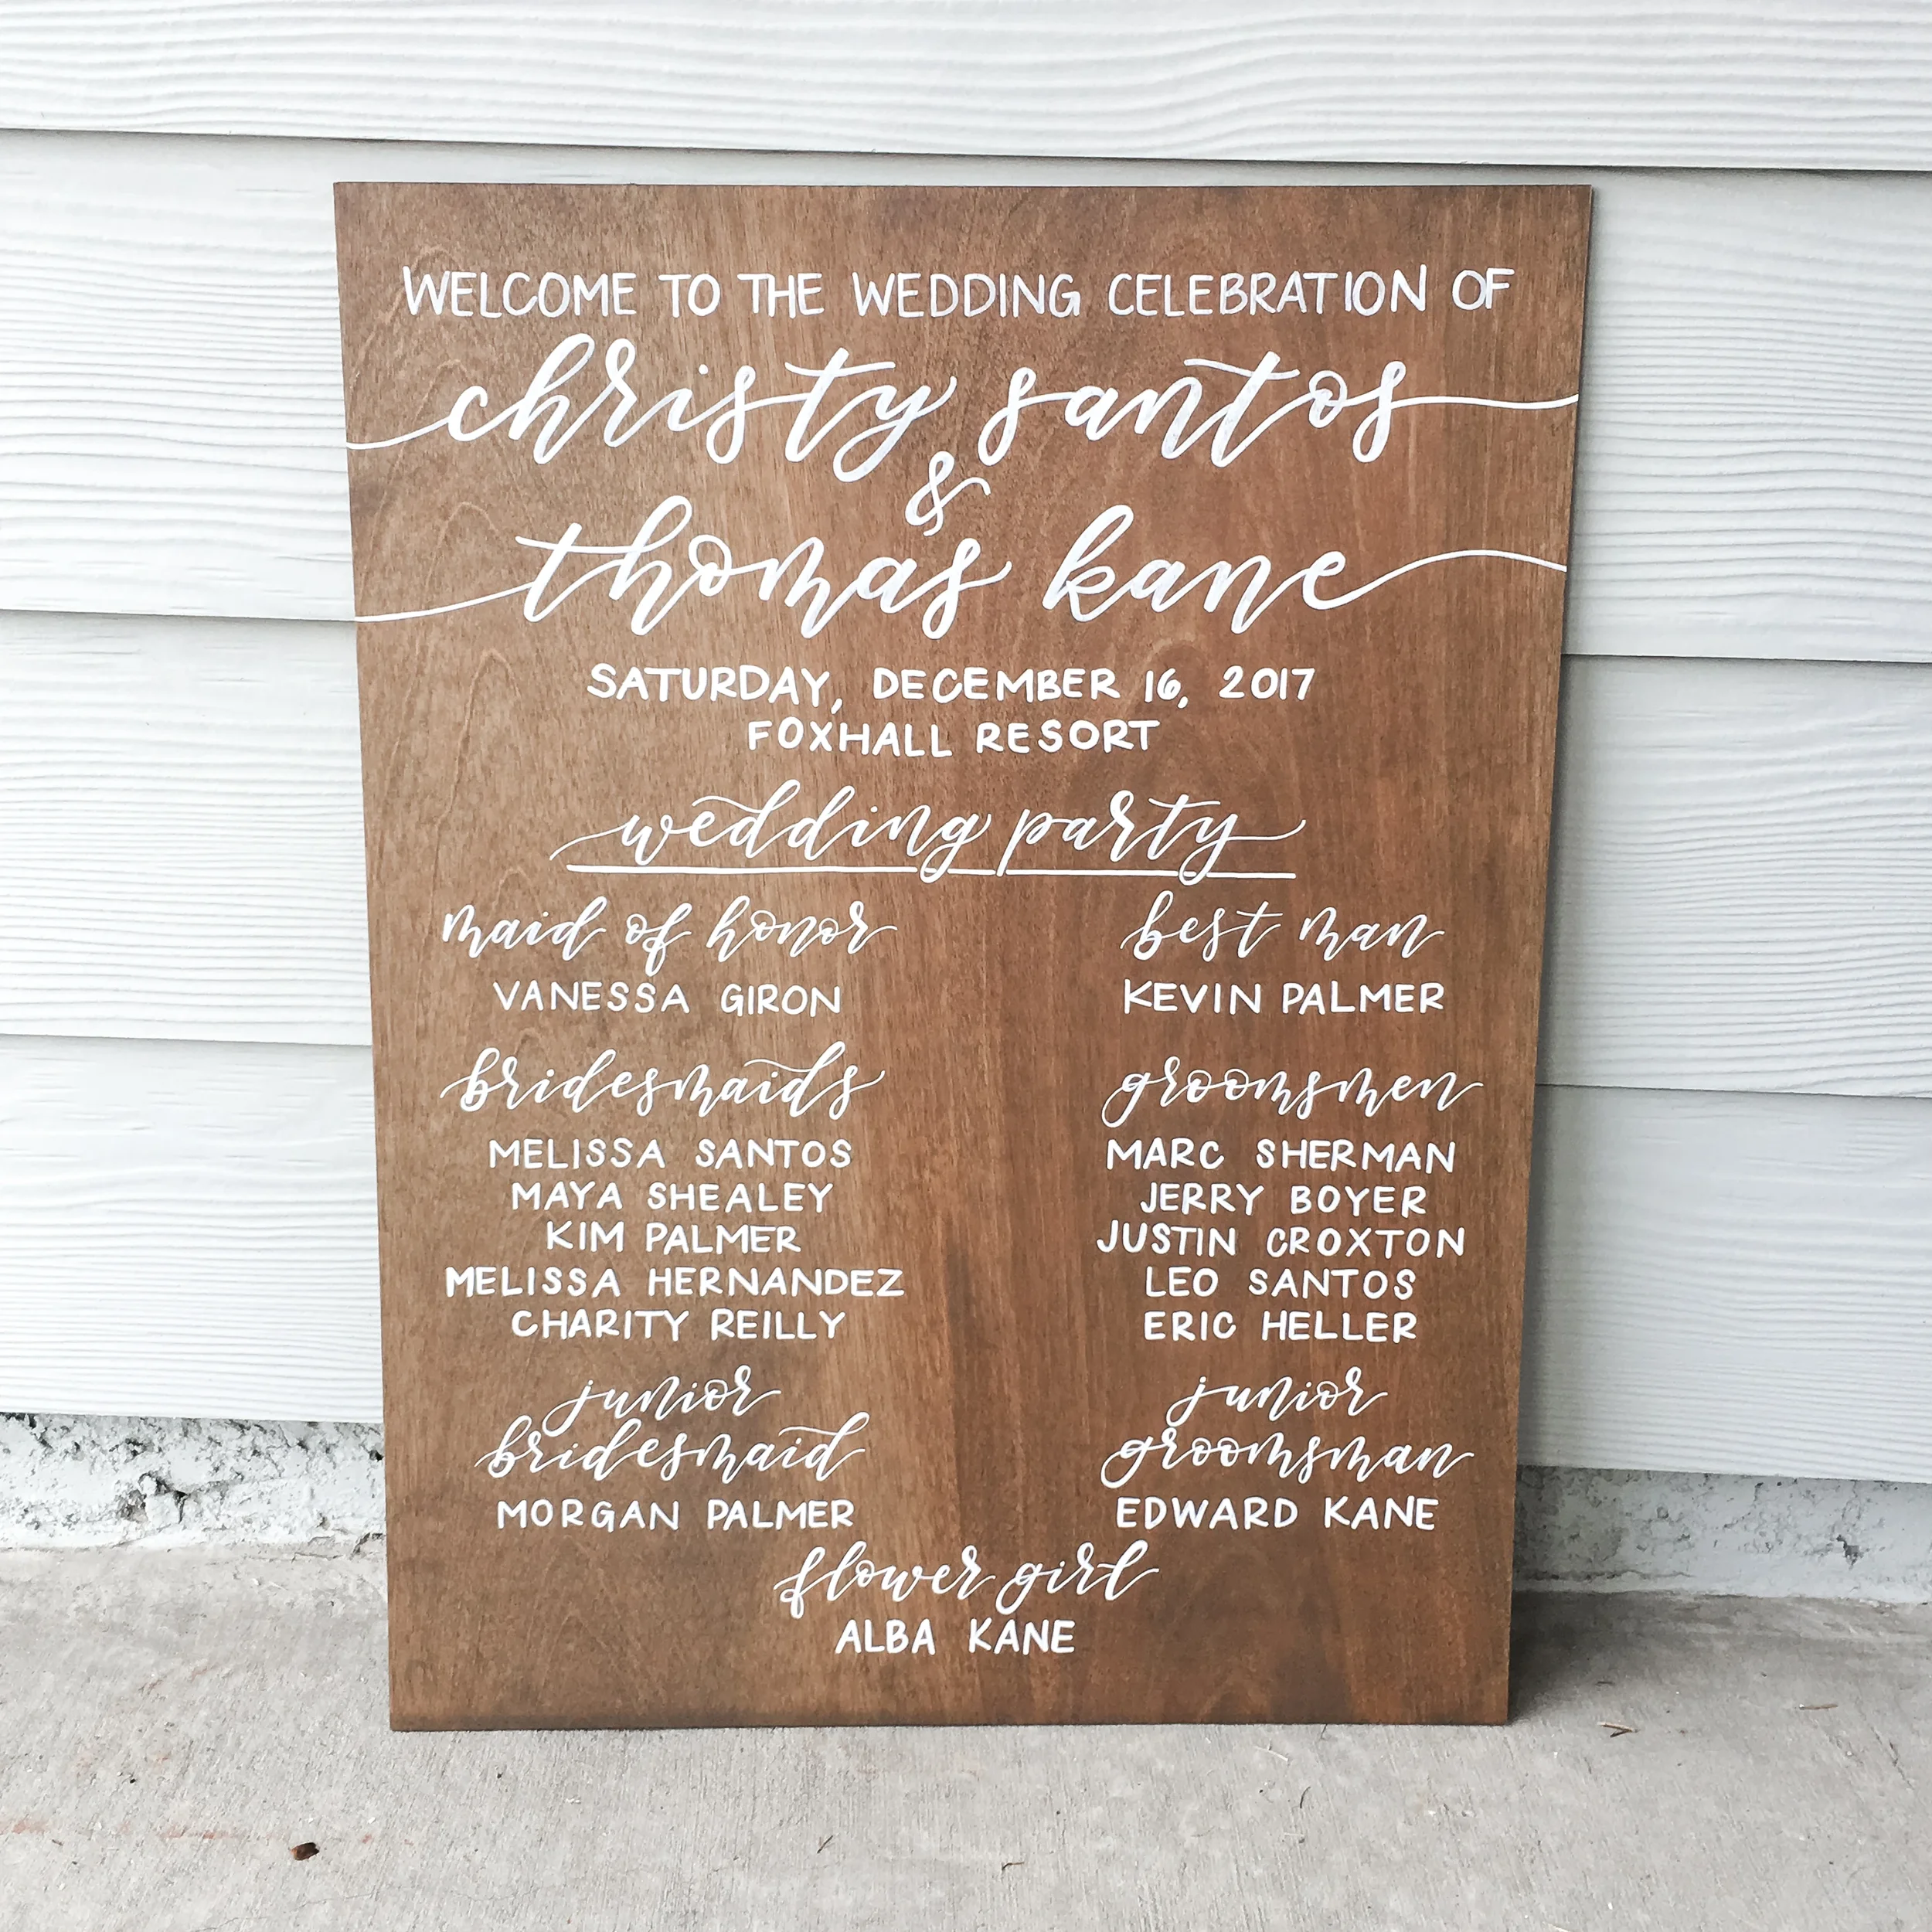 WELCOME TO THE WEDDING CELEBRATION OF
christy santos
&
thomas kane
SATURDAY, DECEMBER 16, 2017
FOXHALL RESORT
wedding party
maid of honor
VANESSA GIRON
bridesmaids
MELISSA SANTOS
MAYA SHEALEY
KIM PALMER
MELISSA HERNANDEZ
CHARITY REILLY
junior
bridesmaid
MORGAN PALMER
best man
KEVIN PALMER
groomsmen
MARC SHERMAN
JERRY BOYER
JUSTIN CROXTON
LEO SANTOS
ERIC HELLER
junior
groomsman
EDWARD KANE
flower girl
ALBA KANE